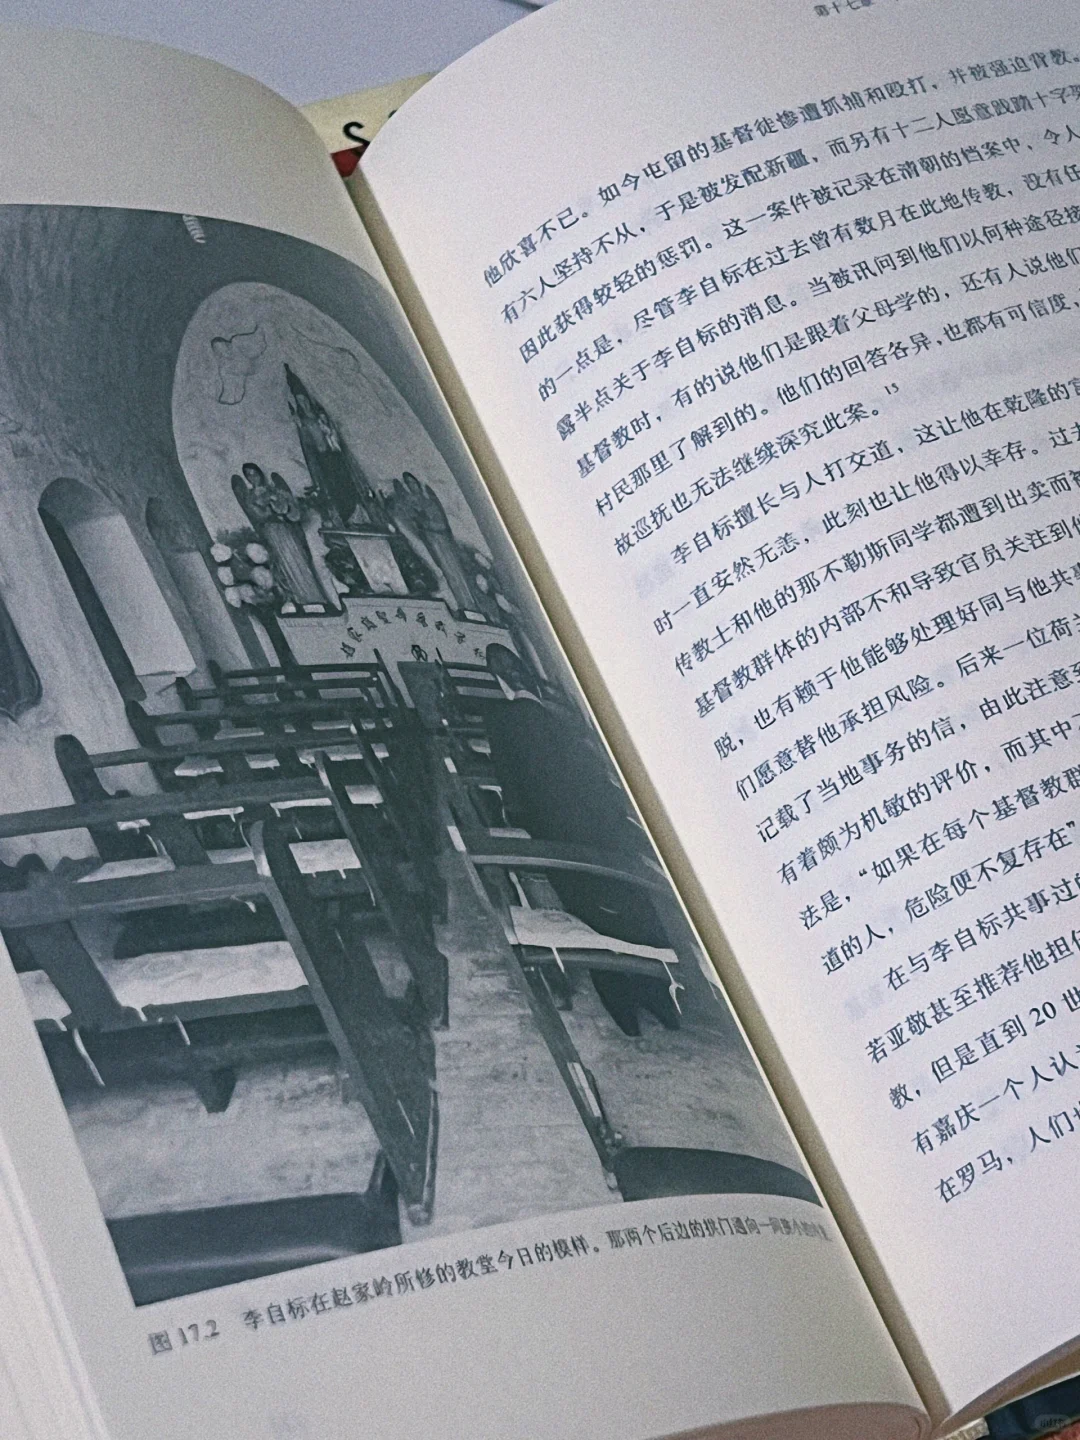 图 17.2 李自标在赵家岭所修的教堂今日的模样。那两个后边的拱门通向一间
第十七章
他欣喜不已。如今屯留的基督徒惨遭抓捕和殴打，并被强迫背教。
有六人坚持不从，于是被发配新疆，而另有十二人愿意践踏十字架
因此获得较轻的惩罚。这一案件被记录在清朝的档案中，令人
的一点是，尽管李自标在过去曾有数月在此地传教，没有任
露半点关于李自标的消息。当被讯问到他们以何种途径接
基督教时，有的说他们是跟着父母学的，还有人说他们
村民那里了解到的。他们的回答各异，也都有可信度，
故巡抚也无法继续深究此案。15
李自标擅长与人打交道，这让他在乾隆的官
时一直安然无恙，此刻也让他得以幸存。过去
传教士和他的那不勒斯同学都遭到出卖而被
基督教群体的内部不和导致官员关注到他
脱，也有赖于他能够处理好同与他共事
们愿意替他承担风险。后来一位荷兰
记载了当地事务的信，由此注意到
有着颇为机敏的评价，而其中
法是，“如果在每个基督教群
道的人，危险便不复存在”
在与李自标共事过的
若亚敬甚至推荐他担任
教，但是直到 20 世
有嘉庆一个人认
在罗马，人们